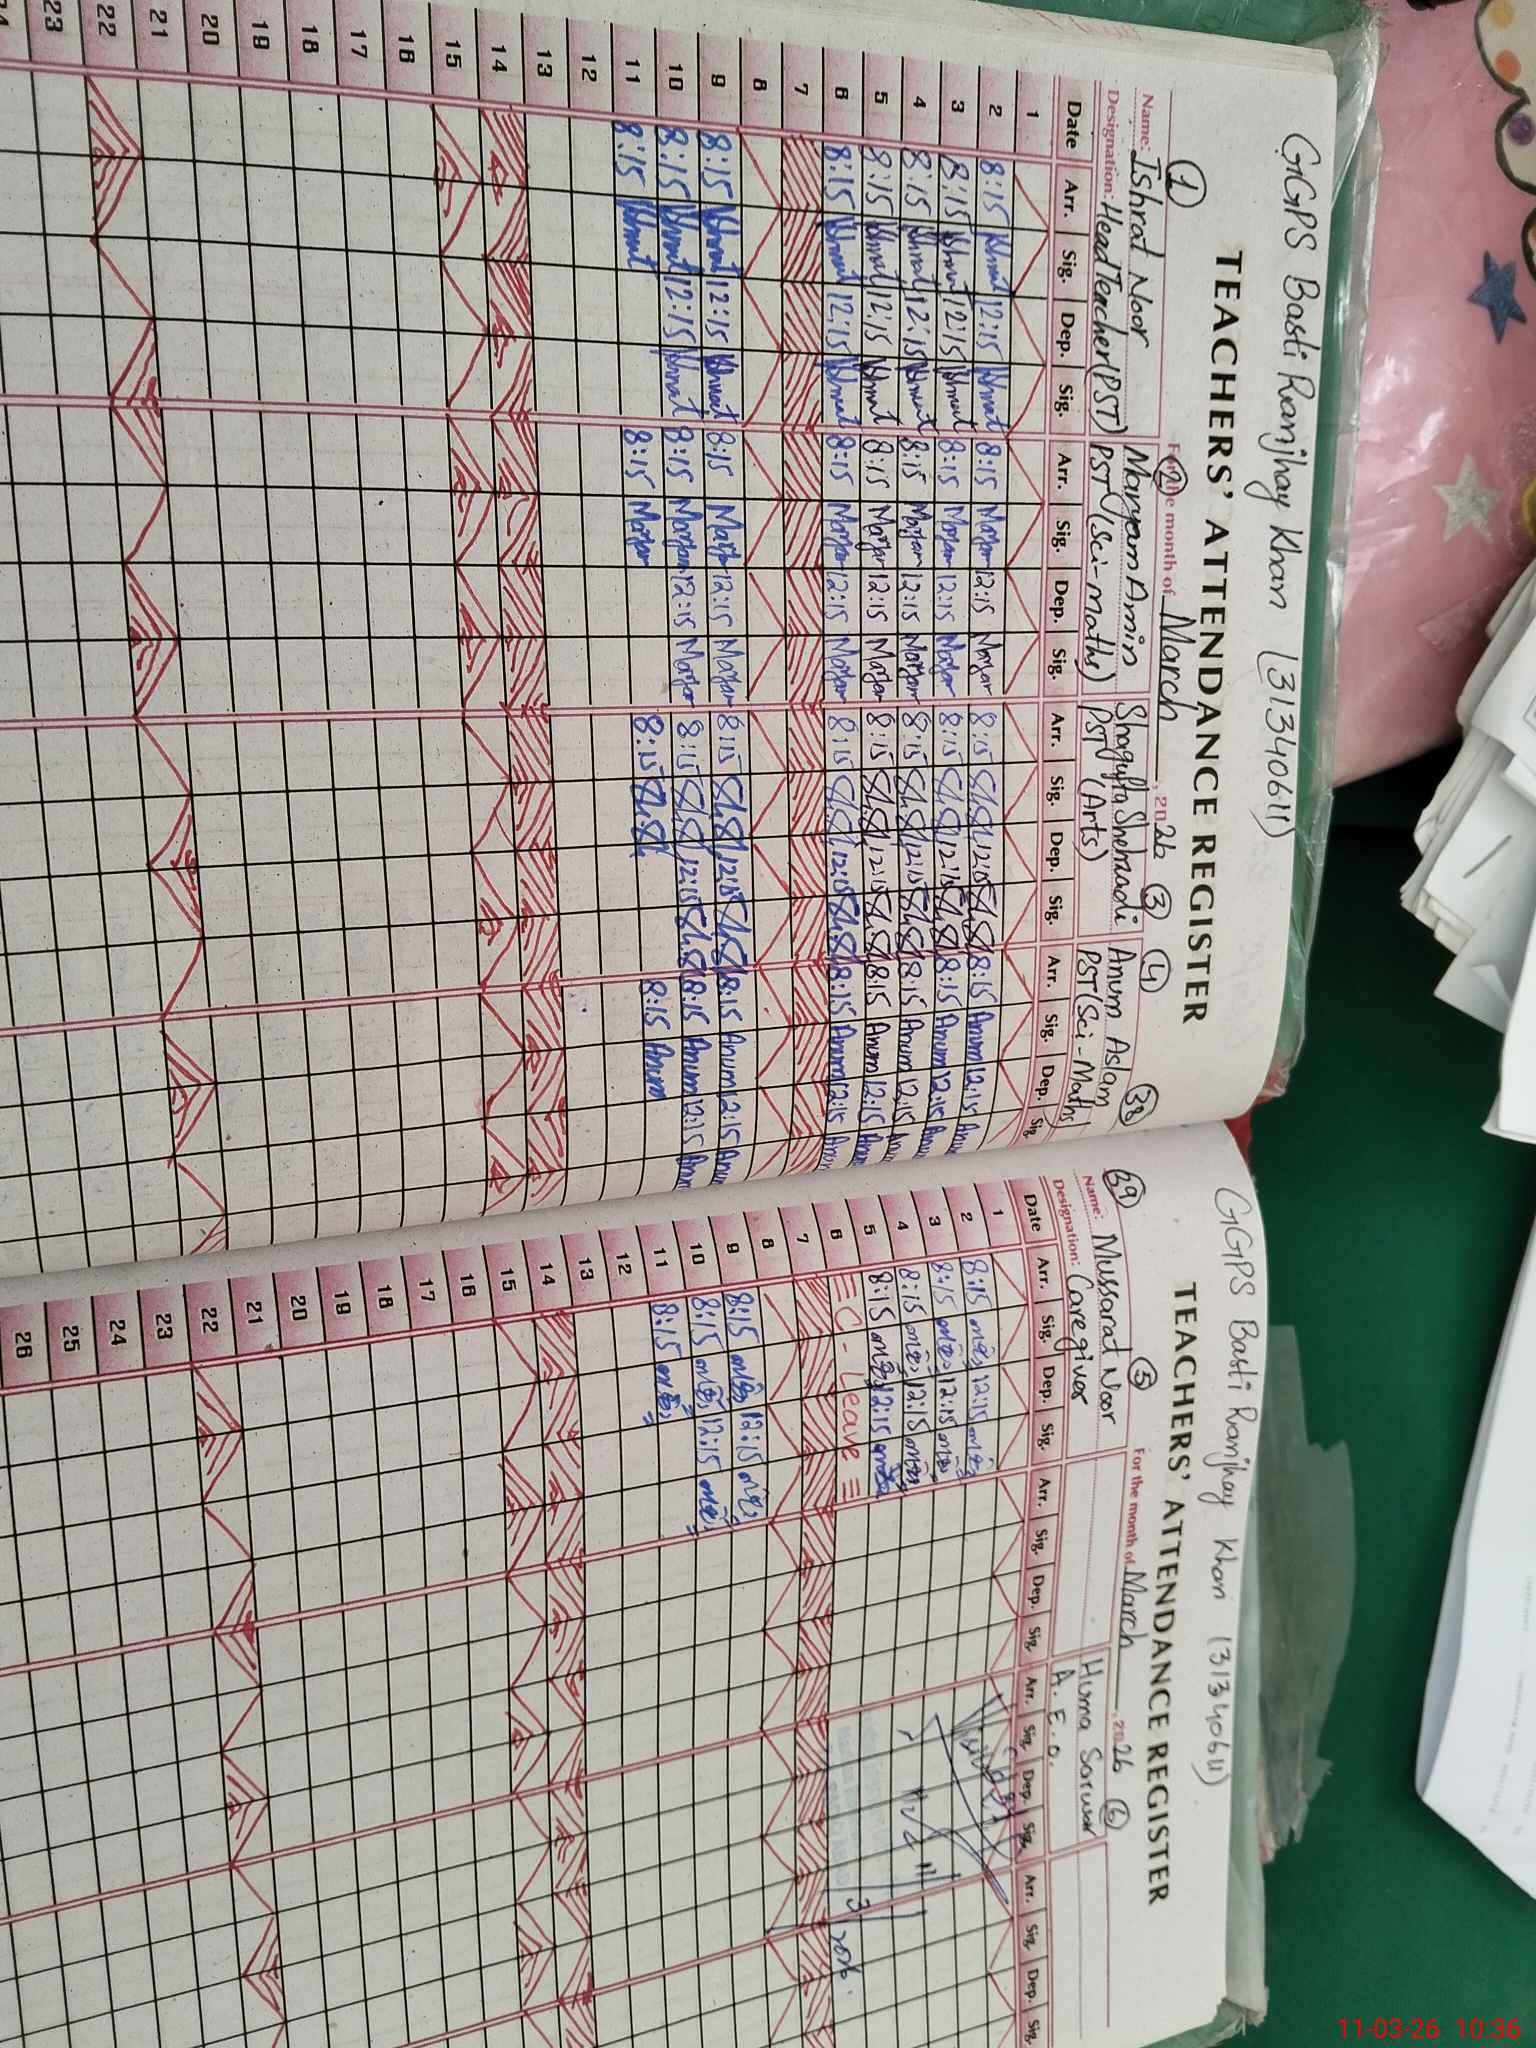 GGPS Basti Ranjhay Khan (31340611)
TEACHERS' ATTENDANCE REGISTER
1 For the month of March, 2026 3 4 38
2
Name: Ishrat Noor Maryam Amin Shagufta Shehzadi Anum Aslam
Designation: Head Teacher (PST) PST (Sci-maths) PST (Arts) PST (Sci-Maths)
Date Arr. Sig. Dep. Sig. Arr. Sig. Dep. Sig. Arr. Sig. Dep. Sig. Arr. Sig. Dep. Sig
1
2 8:15 Ishrat 12:15 Ishrat 8:15 12:15 8:15 12:15 8:15 Anum 12:15
3 8:15 Ishrat 12:15 Ishrat 8:15 12:15 8:15 12:15 8:15 Anum 12:15
4 8:15 Ishrat 12:15 Ishrat 8:15 12:15 8:15 12:15 8:15 Anum 12:15
5 8:15 Ishrat 12:15 Ishrat 8:15 12:15 8:15 12:15 8:15 Anum 12:15
6 8:15 Ishrat 12:15 Ishrat 8:15 12:15 8:15 12:15 8:15 Anum 12:15
7
8
9 8:15 Ishrat 12:15 Ishrat 8:15 12:15 8:15 12:15 8:15 Anum 12:15
10 8:15 Ishrat 12:15 Ishrat 8:15 12:15 8:15 12:15 8:15 Anum 12:15
11 8:15 Ishrat 8:15 8:15 8:15 Anum
12
13
14
15
16
17
18
19
20
21
22
23
GGPS Basti Ranjhay Khan (31340611)
TEACHERS' ATTENDANCE REGISTER
39 5 For the month of March, 2026 6
Name: Mussarat Noor Huma Sarwar
Designation: Caregiver A.E.O.
Date Arr. Sig. Dep. Sig. Arr. Sig. Dep. Sig. Arr. Sig. Dep. Sig. Arr. Sig. Dep. Sig.
1
2 8:15 12:15
3 8:15 12:15
4 8:15 12:15
5 8:15 12:15
6 C-Leave
7
8
9 8:15 12:15
10 8:15 12:15
11 8:15
12
13
14
15
16
17
18
19
20
21
22
23
24
25
26
11-03-26 10:36